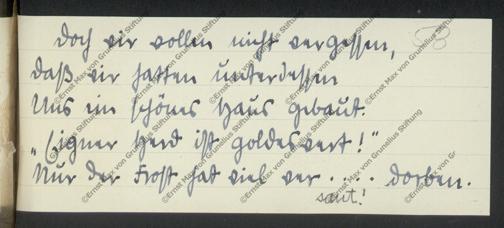 Doch wir wollen nicht vergessen,
Daß wir hatten unterdessen
Uns ein schönes Haus gebaut.
„Eigner Herd ist goldeswert!"
Nur der Frost hat viel ver.... dorben.
saut!
©Ernst Max von Grunelius Stiftung